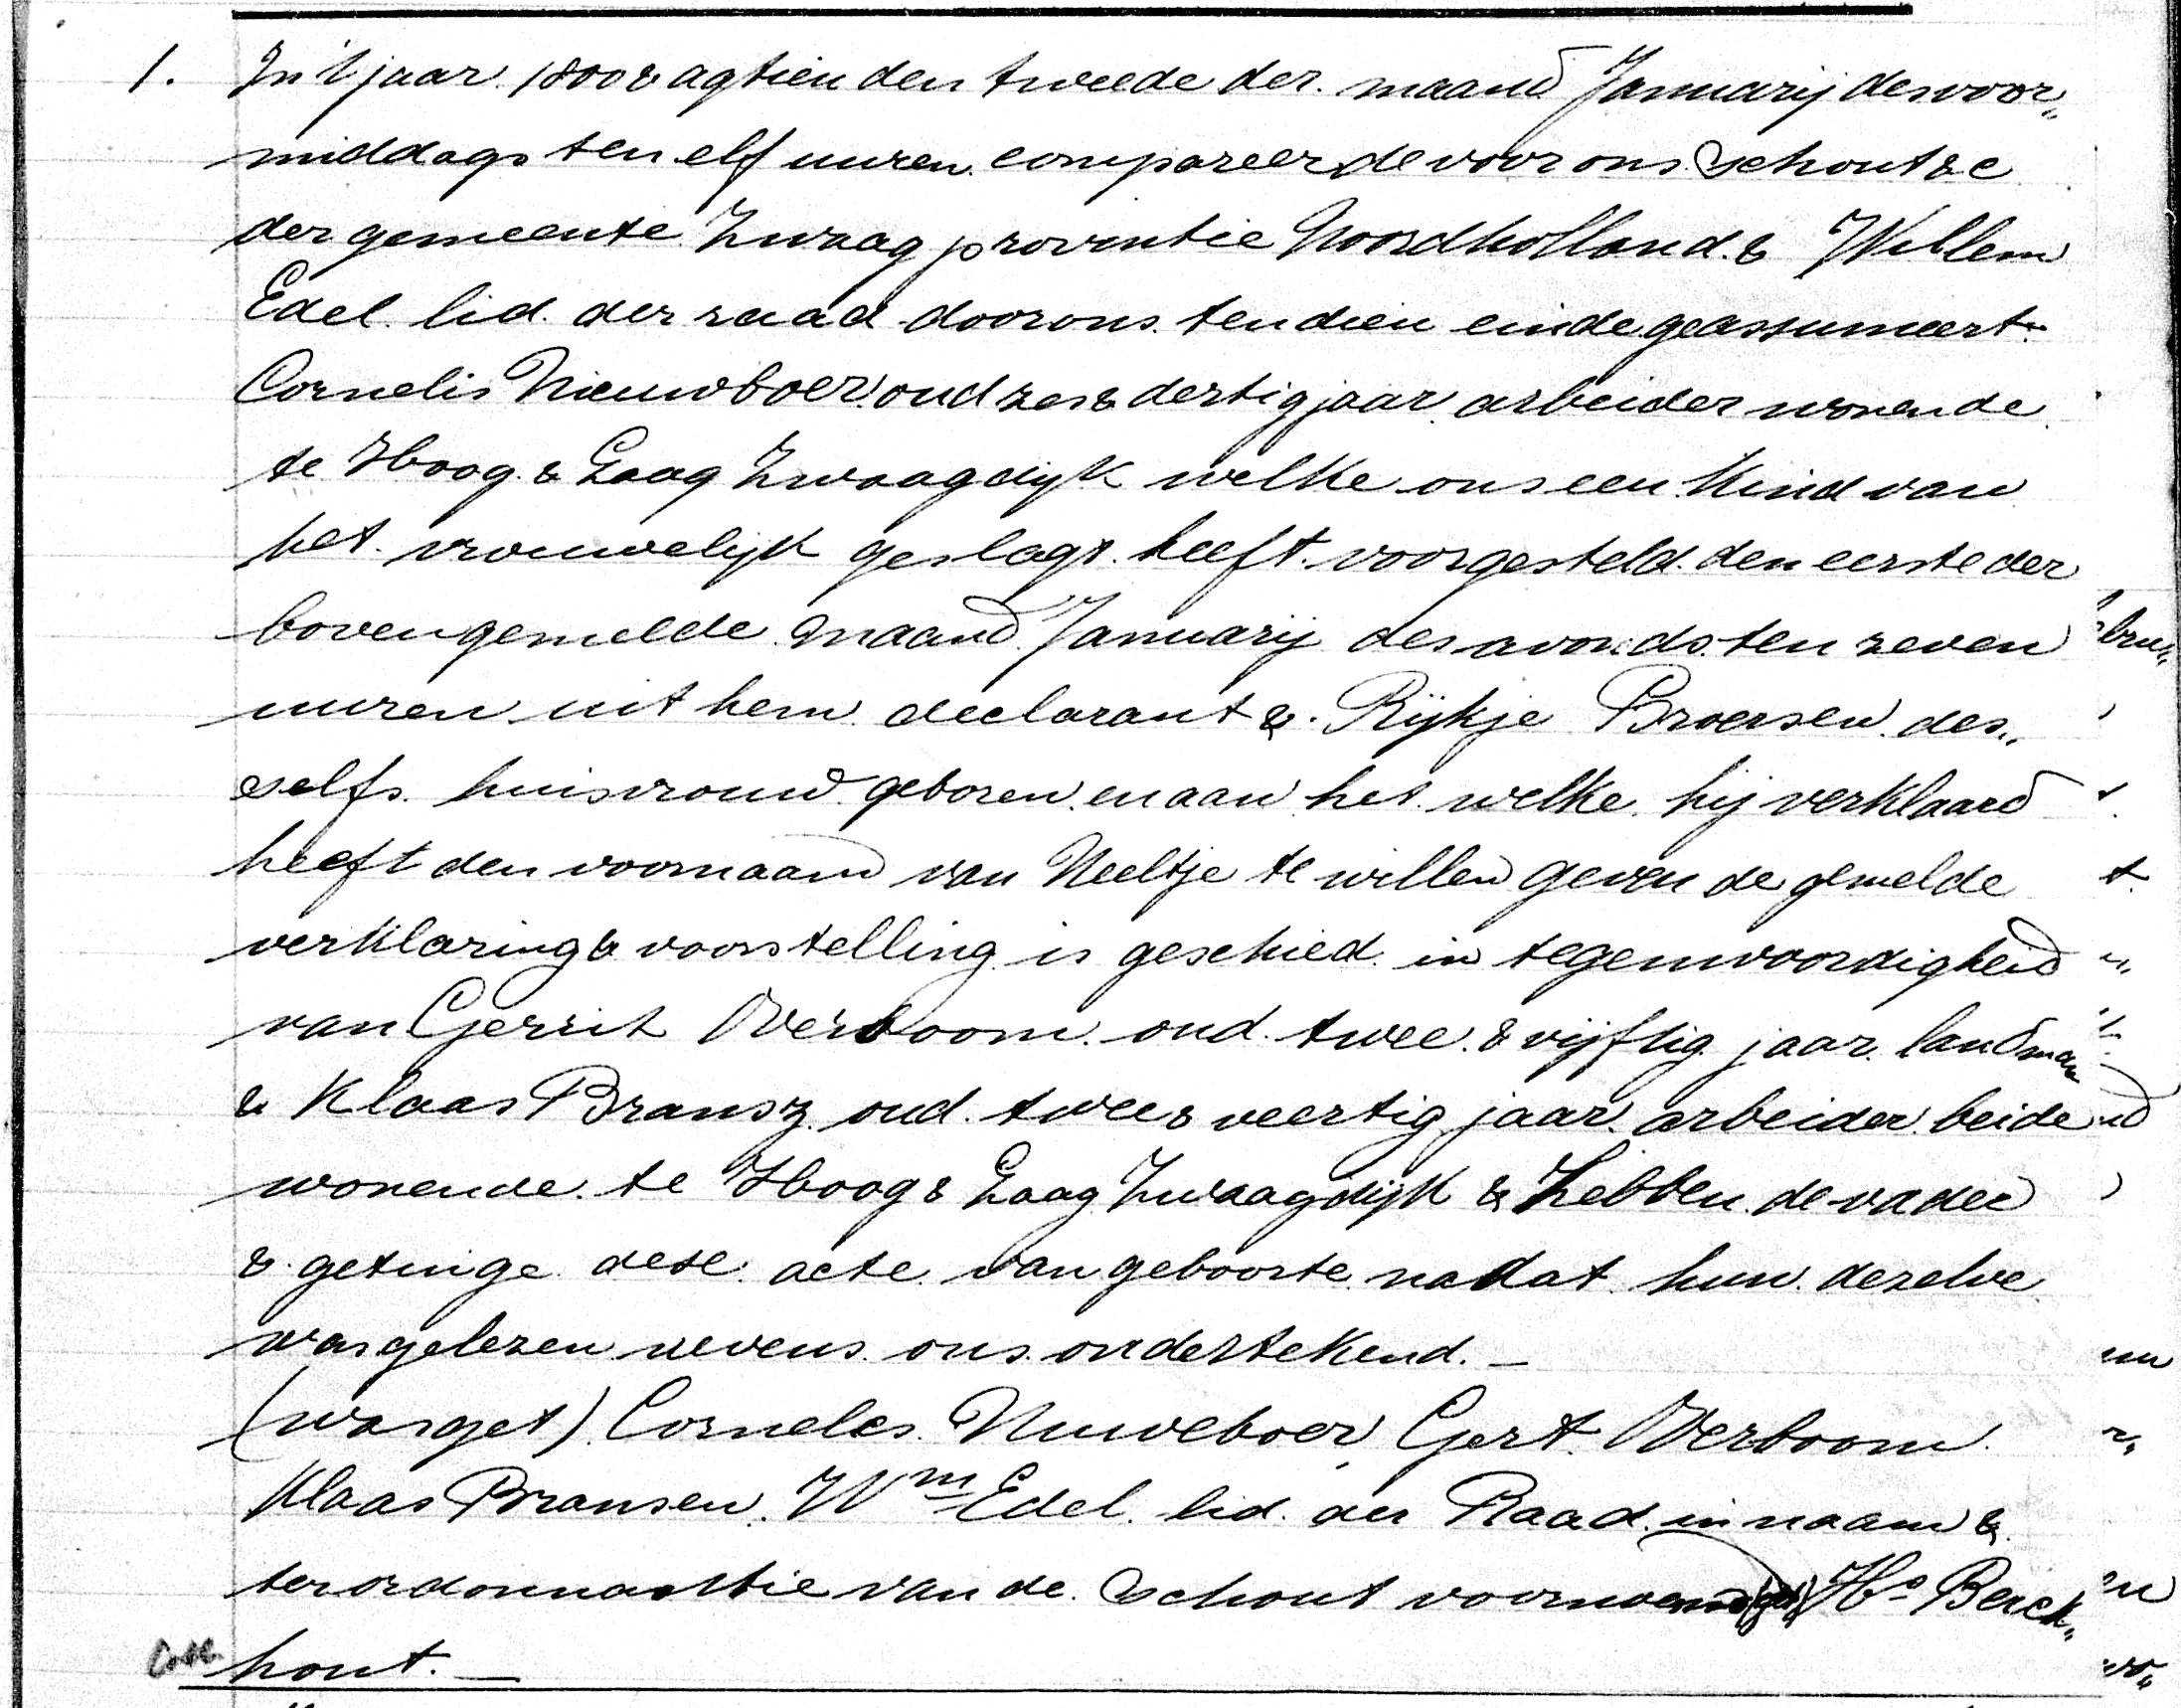 1. In 't jaar 1800 & agtien den tweede der maand Januarij des voor„
middags ten elf uuren compareerde voor ons Schout &c
der gemeente Zwaag provintie Noordholland & Willem
Edel lid der raad door ons ten dien einde geassumeert
Cornelis Nieuwboer oud zes & dertig jaar arbeider wonende
te Hoog & Laag Zwaagdijk welke ons een Kind van
het vrouwelijk geslagt heeft voorgesteld den eerste der
bovengemelde maand Januarij des avonds ten zeven
uuren uit hem declarant & Rijkje Broersen des„
selfs huisvrouw geboren en aan het welke hij verklaard
heeft den voornaam van Neeltje te willen geven de gemelde
verklaring & voorstelling is geschied in tegenwoordigheid
van Gerrit Overboom oud twee & vijftig jaar landman
& Klaas Bransz oud twee & veertig jaar arbeider beide
wonende te Hoog & Laag Zwaagdijk & hebben de vader
& getuige dese acte van geboorte nadat hun dezelve
was gelezen nevens ons ondertekend. —
(was get) Corneles Nuweboer, Gert Overboom
Klaas Bransen. Wm Edel lid der Raad in naam &
ter ordonnantie van de Schout voornoemd (get) Hs Berck„
hout. —